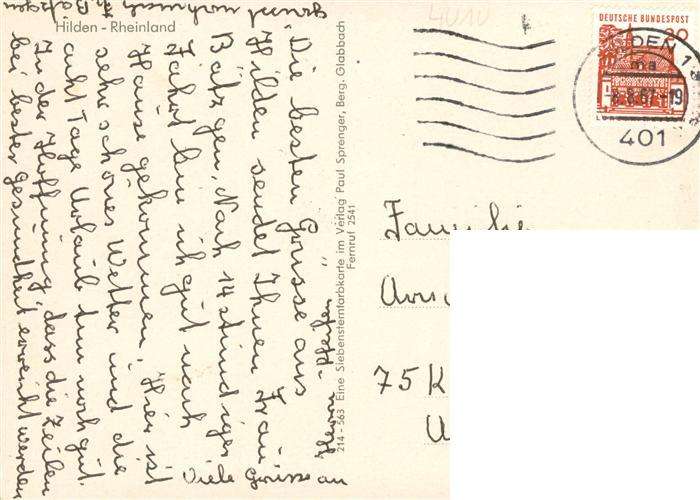 Hilden - Rheinland
"Die besten Grüsse aus
Hilden sendet Ihnen Frau
Bätzgen. Nach 14 stündiger
Fahrt bin ich gut nach
Hause gekommen. Hier ist
sehr schönes Wetter und die
acht Tage Urlaub tun noch gut.
In der Hoffnung, dass die Zeilen
bei bester Gesundheit erreicht werden
grüsst nochmals
Viele Grüsse an
214 - 563 Eine Siebensternfarbkarte im Verlag Paul Sprenger, Berg. Gladbach
Fernruf 2541
4010
DEUTSCHE BUNDESPOST
20
DEN 1
ma
-8.8.67-19
401
Familie
75 K